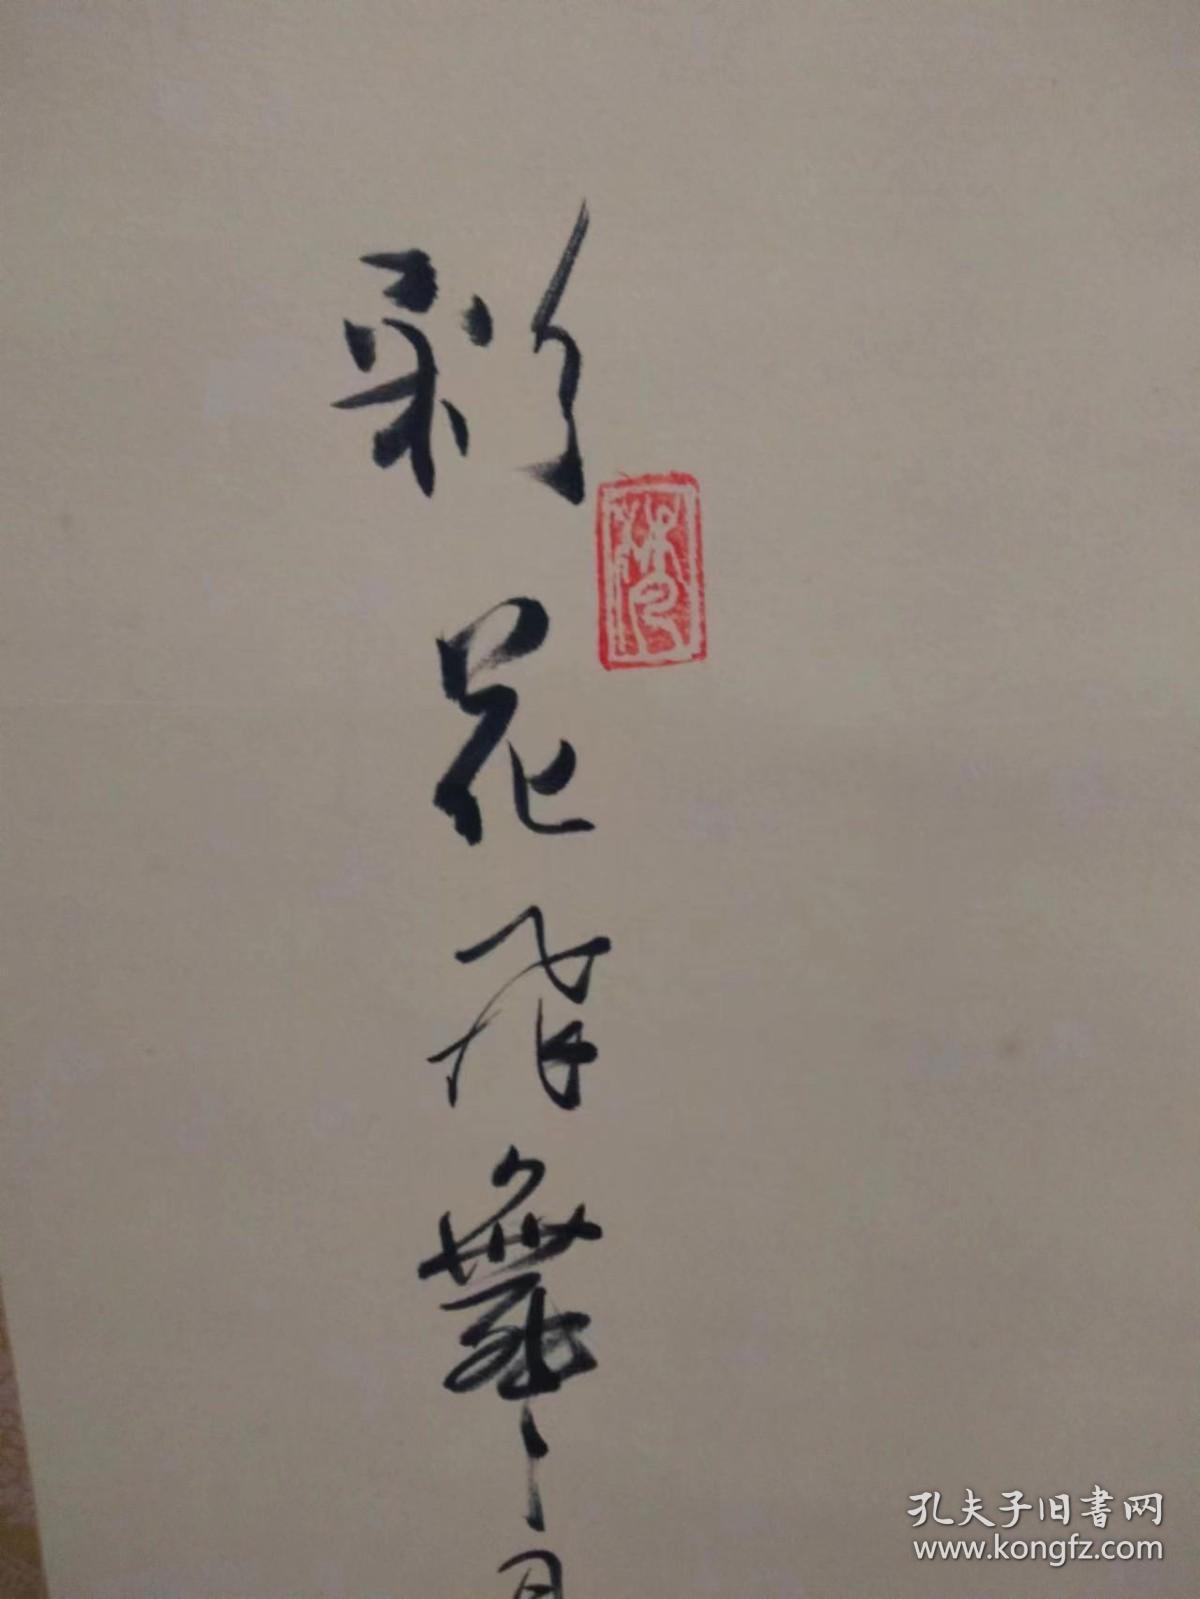 彩花飛舞
孔夫子旧書网
www.kongfz.com